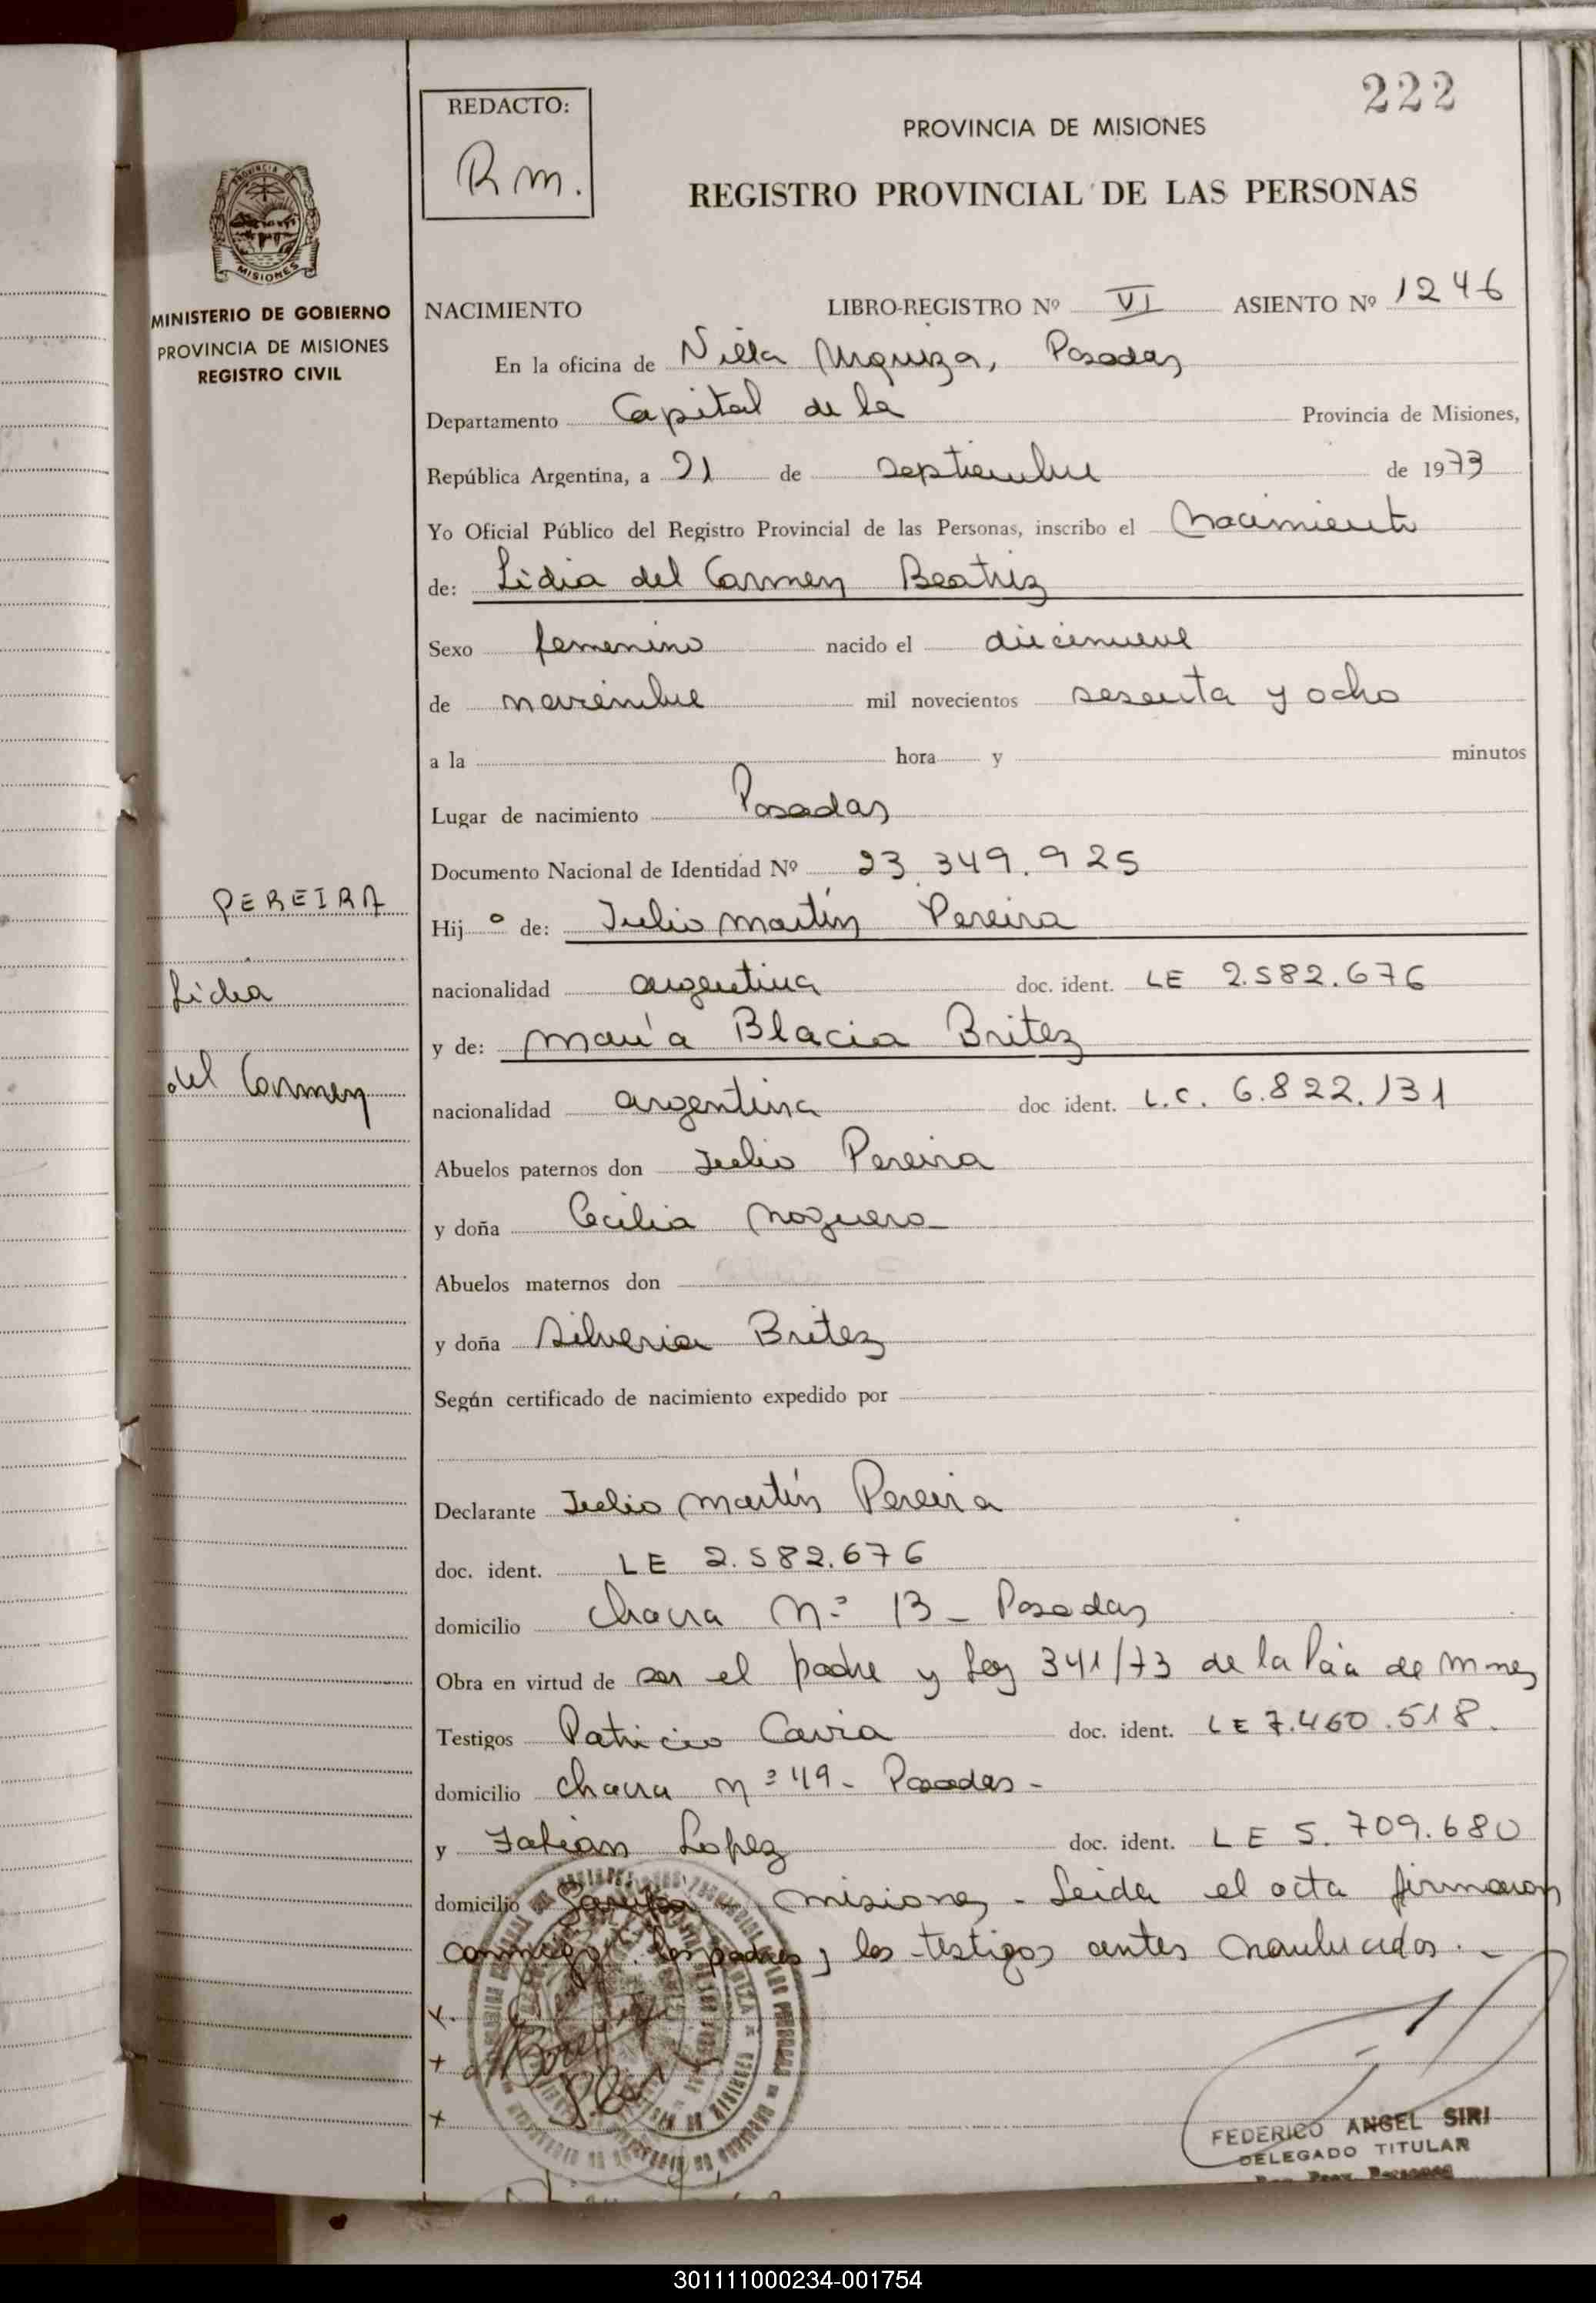 222
REDACTO:
Rm.
PROVINCIA DE MISIONES
REGISTRO PROVINCIAL DE LAS PERSONAS
MISIONES
MINISTERIO DE GOBIERNO
PROVINCIA DE MISIONES
REGISTRO CIVIL
NACIMIENTO LIBRO-REGISTRO Nº VI ASIENTO Nº 1246
En la oficina de Villa Urquiza, Posadas
Departamento Capital de la Provincia de Misiones,
República Argentina, a 21 de septiembre de 1973
Yo Oficial Público del Registro Provincial de las Personas, inscribo el nacimiento
de: Lidia del Carmen Beatriz
Sexo femenino nacido el diecinueve
de noviembre mil novecientos sesenta y ocho
a la hora y minutos
Lugar de nacimiento Posadas
Documento Nacional de Identidad Nº 23.349.925
PEREIRA
Lidia
del Carmen
Hij o de: Julio Martín Pereira
nacionalidad argentina doc. ident. LE 2.582.676
y de: María Blacia Britez
nacionalidad argentina doc ident. L.C. 6.822.131
Abuelos paternos don Julio Pereira
y doña Cecilia Noguera
Abuelos maternos don
y doña Silveria Britez
Según certificado de nacimiento expedido por
Declarante Julio Martín Pereira
doc. ident. LE 2.582.676
domicilio Chacra Nº 13 - Posadas
Obra en virtud de ser el padre y Ley 341/73 de la Pcia de Mnes
Testigos Patricio Cavia doc. ident. LE 7.460.518.
domicilio Chacra nº 49 - Posadas -
y Fabián Lopez doc. ident. LE 5.709.680
domicilio Garupa Misiones - Leida el acta firmaron
conmigo los padres y los testigos antes nombrados. -
X.
+
+
FEDERICO ANGEL SIRI
DELEGADO TITULAR
Reg. Prov. Personas
301111000234-001754